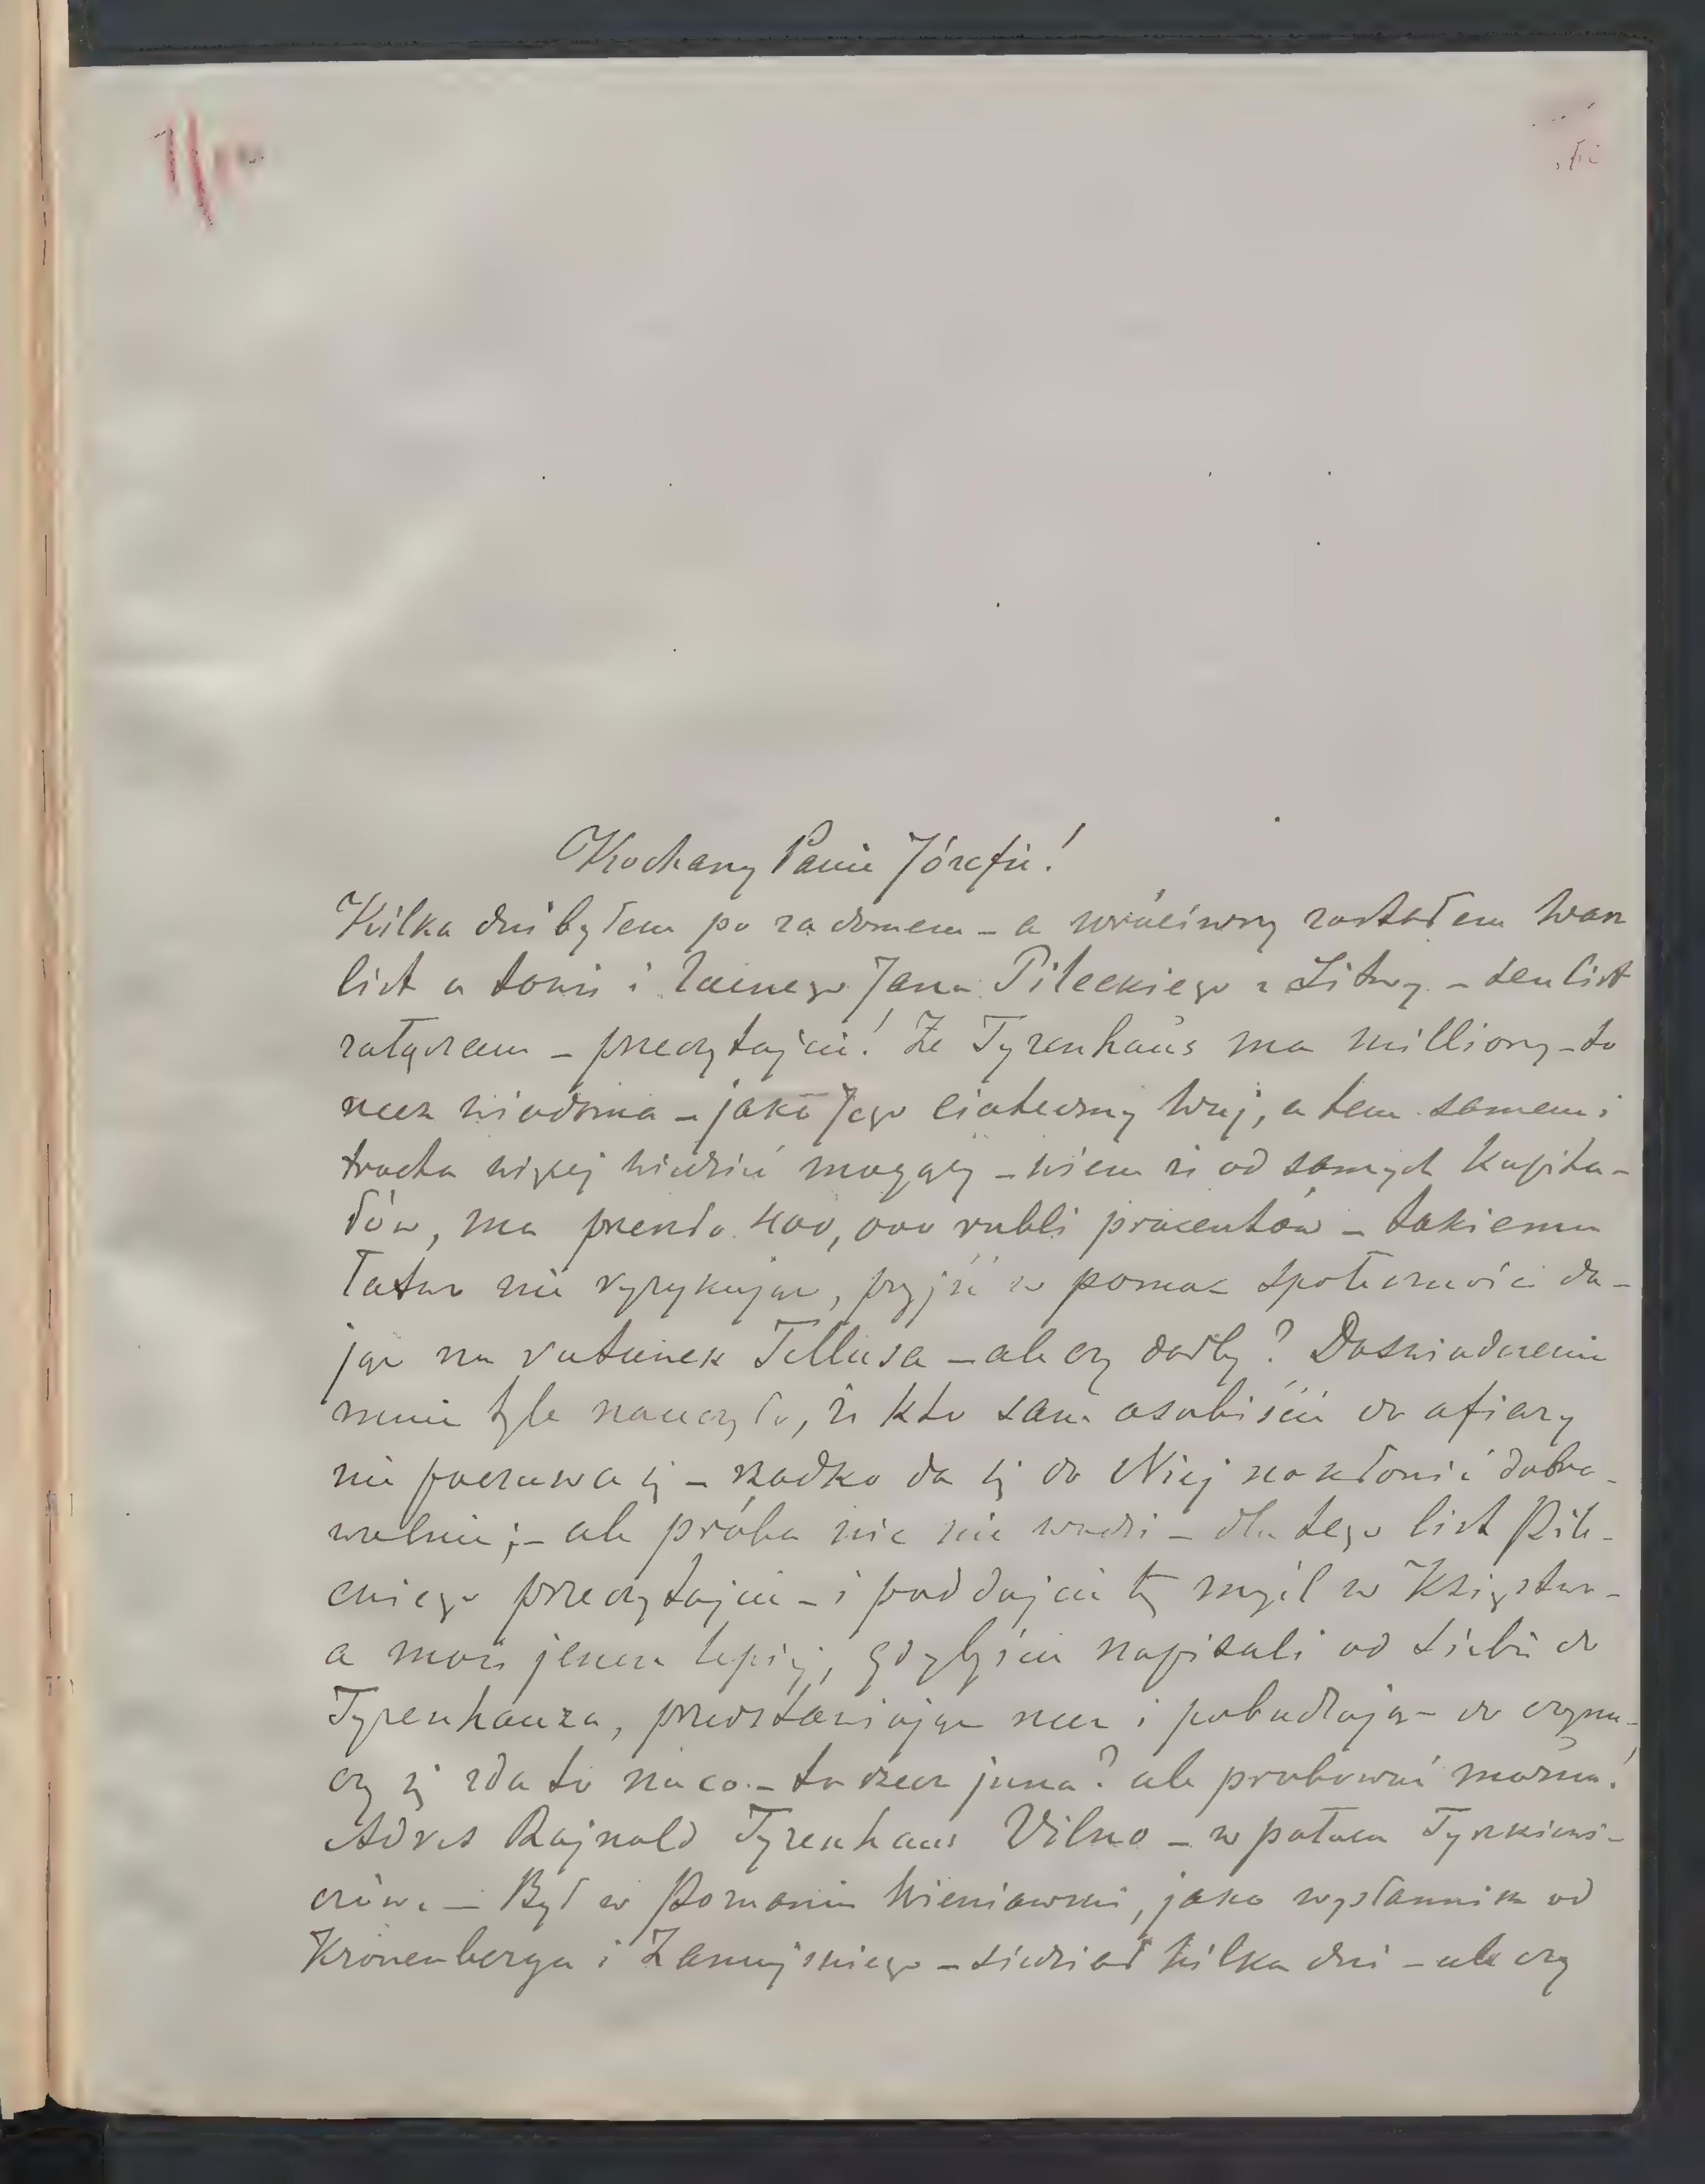 Kochany Panie Józefie!
Kilka dni byłem po za domem – a wróciwszy zastałem Wasz
list a toniż i zacnego Jana Pileckiego z Litwy – ten list
załączam – przeczytajcie! Że Tyzenhaus ma milliony – to
rzecz wiadoma – jako Jego cioteczny Wuj, a tem samem i
trocha więcej wiedzieć mogący – wiem że od samych kapita-
łów, ma przeszło 400,000 rubli procentów – takiemu
łatwo nie ryzykując, przyjść w pomoc społeczności da-
jąc na ratunek Tellusa – ale czy dałby? Doświadczenie
mnie tyle nauczyło, że kto sam osobiście do ofiary
nie poczuwa się – rzadko da się do Niej nakłonić dobro-
wolnie; – ale próba nic nie wadzi – dla tego list Pile-
ckiego przeczytajcie – i poddajcie tę myśl w Księstwo –
a może jeszcze lepiej, gdybyście napisali od siebie do
Tyzenhauza, przedstawiając rzecz i pobudzając do czynu –
czy się zda to na co – to rzecz inna? ale probować można!
Adres Rajnold Tyzenhaus Vilno – w pałacu Tyszkiewi-
czów. – Był w Poznaniu Wieniawski, jako wysłannik od
Kronenberga i Zamojskiego – siedział kilka dni – ale czy